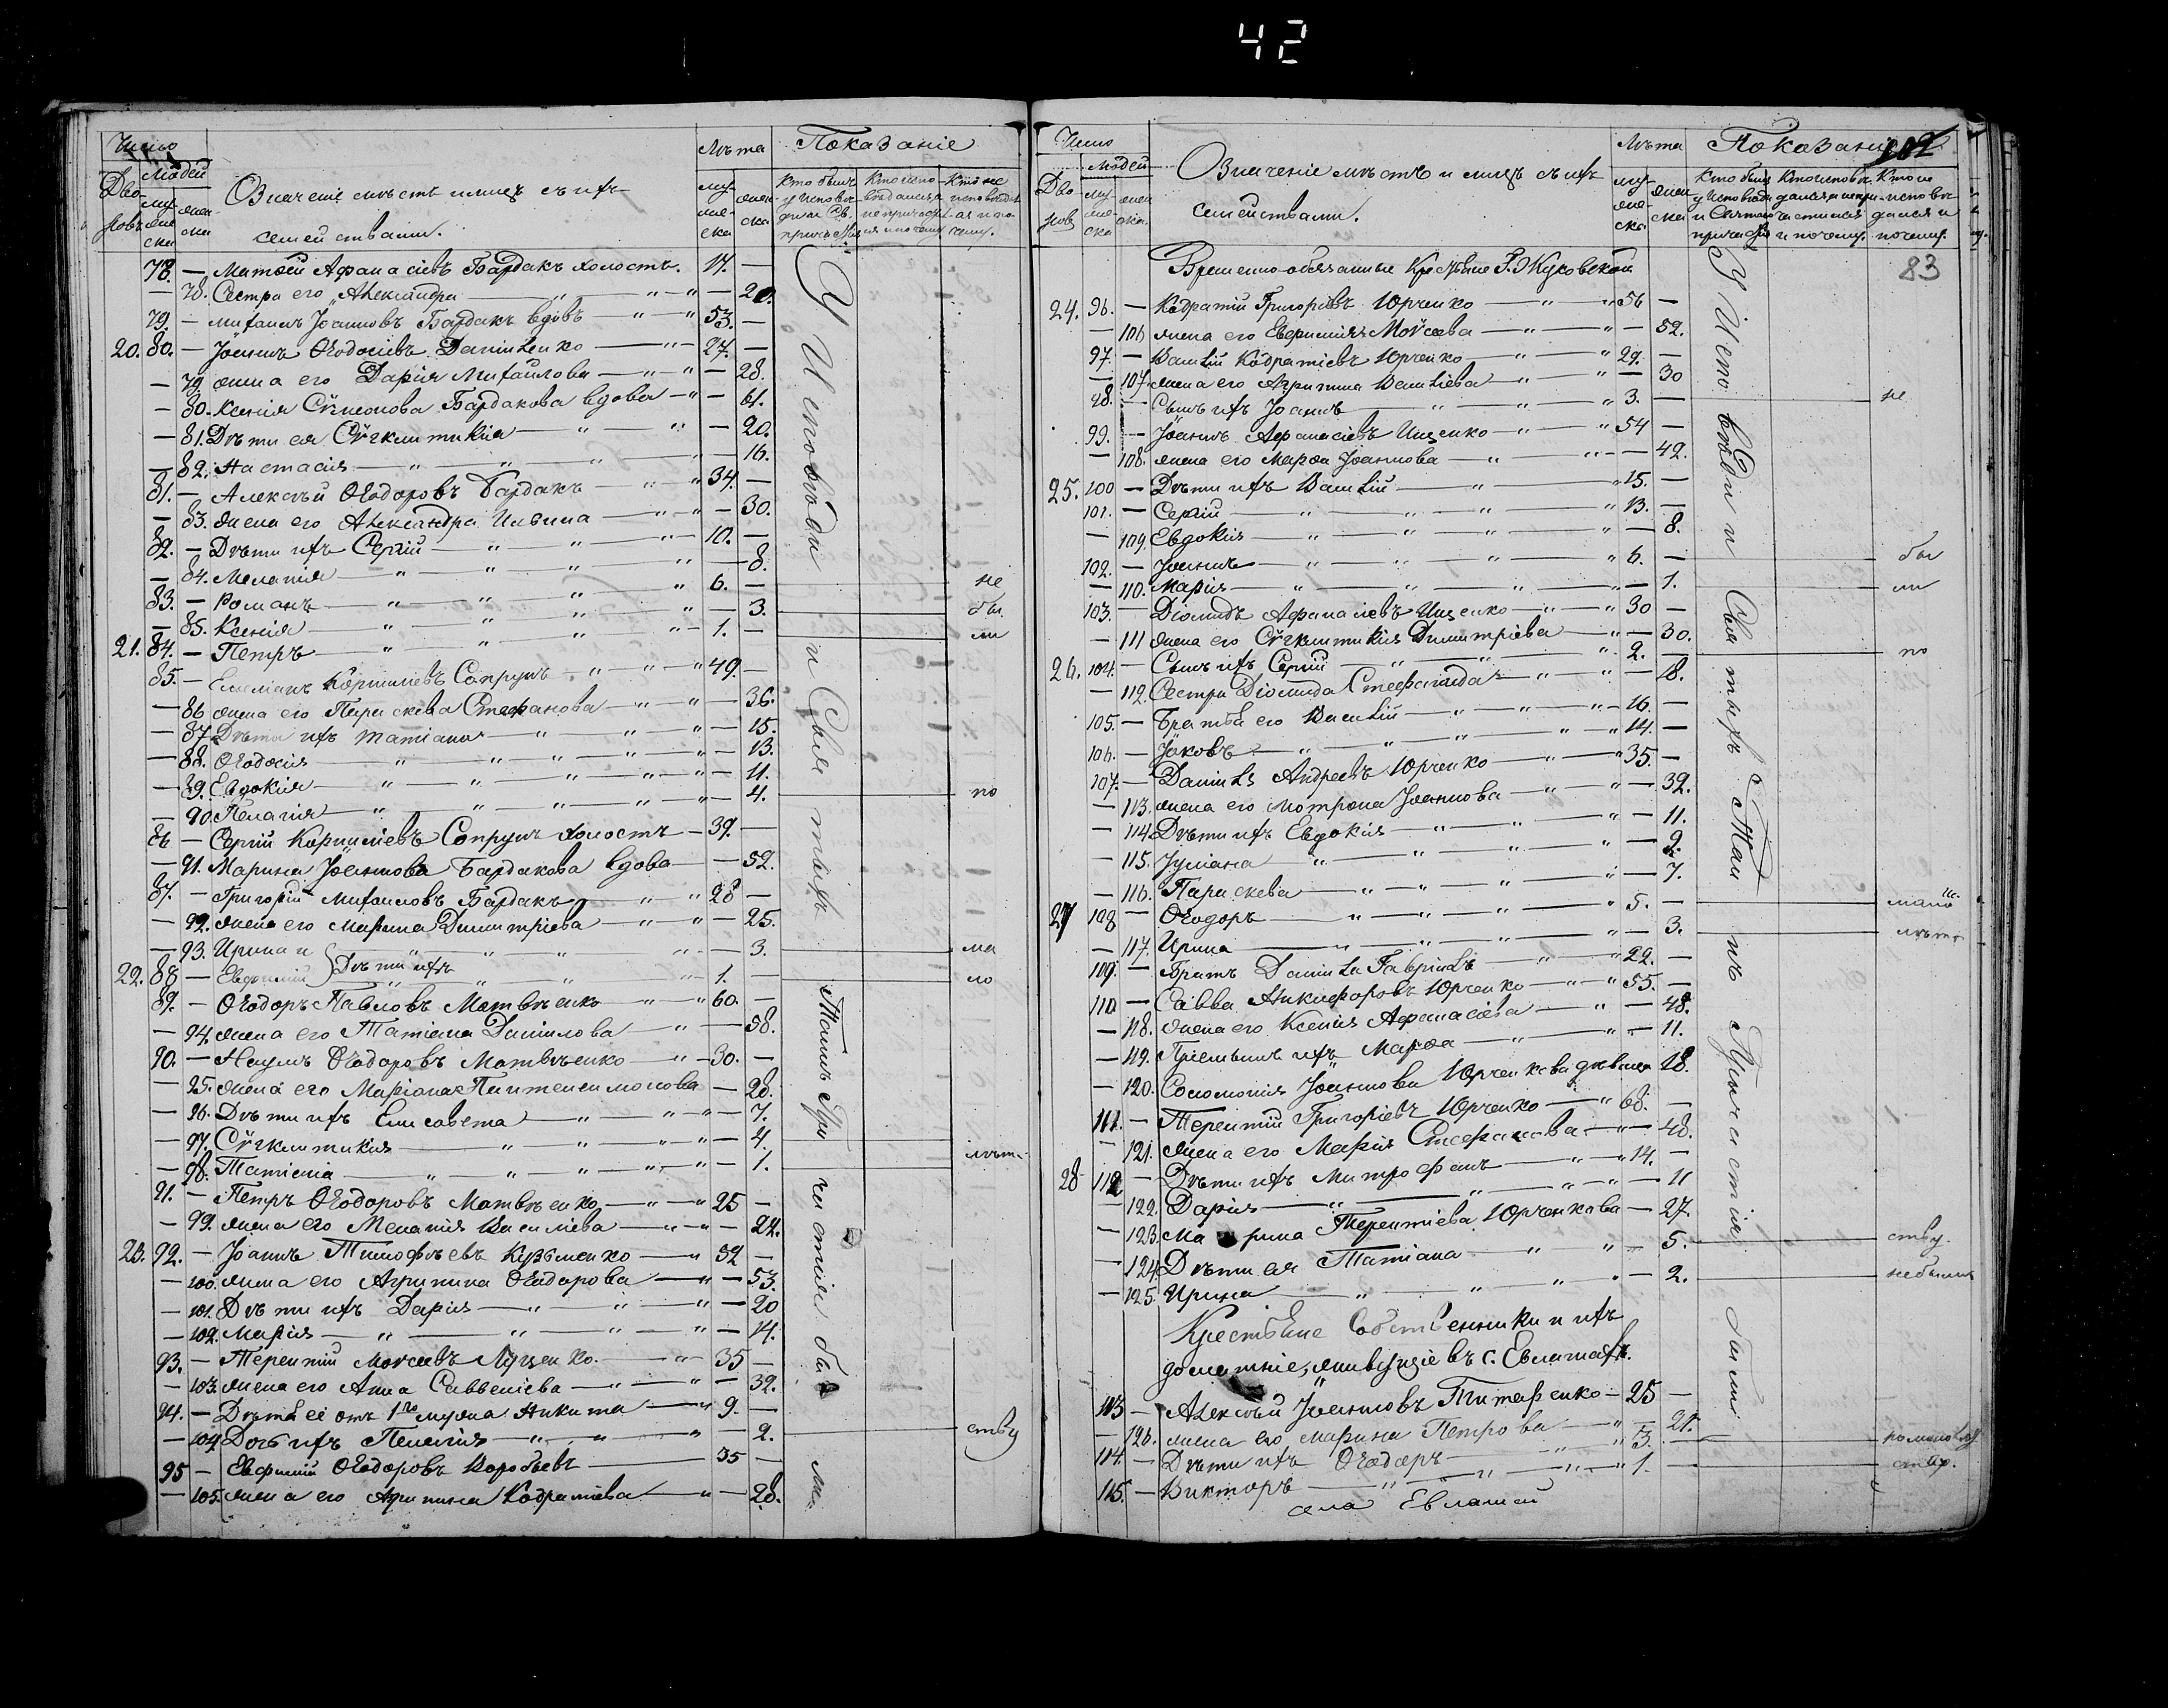 42
Число
Людей
Дво-
ровъ
муже-
ска
жен-
ска
Означеніе мѣстъ и лицъ съ ихъ
семействами.
Лѣта
муже-
ска
жен-
ска
Показаніе
78. — Матѳей Аѳанасіевъ Бардакъ холостъ. 17. —
— 78. Сестра его Александра — 20.
79. — Михаилъ Іоанновъ Бардакъ вдовъ 53. —
20. 80. — Іоаннъ Ѳеодосіевъ Даниленко 27. —
— 79. жена его Дарія Михайлова — 28.
— 80. Ксенія Сѵмеонова Бардакова вдова — 61.
— 81. Дѣти ея Сѵнклитикія — 20.
— 82. Настасія — 16.
81. — Алексѣй Ѳеодоровъ Бардакъ 34. —
— 83. жена его Александра Ильина — 30.
82. — Дѣти ихъ Сергій 10. —
— 84. Меланія — 8.
83. — Романъ 6. — не
— 85. Ксенія — 3. бы
21. 84. — Петръ 1. — ли
85. — Емеліанъ Корниліевъ Сопрунъ 49. —
— 86 жена его Параскева Стефанова — 36.
— 87 Дѣти ихъ Татіана — 15.
— 88. Ѳеодосія — 13.
— 89. Евдокія — 11.
— 90. Пелагія — 4. по
86 — Сергій Корниліевъ Сопрунъ холостъ — 39. —
— 91. Марина Іоаннова Бардакова вдова — 52.
87. — Григорій Михаиловъ Бардакъ 28 —
— 92. жена его Марина Димитріева — 25.
— 93. Ирина и — 3. ма
22. 88 — Евфимій } Дѣти ихъ 1. — ло
89. — Ѳеодоръ Павловъ Матвѣенко 60. —
— 94. жена его Татіана Даніилова — 58.
90. — Наумъ Ѳеодоровъ Матвѣенко 30. —
— 95. жена его Маріана Пантелеимонова — 28.
— 96. Дѣти ихъ Елисавета — 7.
— 97. Сѵнклитикія — 4.
— 98. Татіана — 1. лѣт.
91. — Петръ Ѳеодоровъ Матвѣенко 25 —
— 99. жена его Меланія Василіева — 24.
23. 92. — Іоаннъ Тимоѳѣевъ Кузьменко 52 —
— 100. жена его Агрипина Ѳеодорова — 53.
— 101. Дѣти ихъ Дарія — 20
— 102. Марія — 14.
93. — Терентій Моѵсеевъ Луценко. 35 —
— 103. жена его Анна Саввеліева — 32.
94. — Дѣти её отъ 1го мужа Никита 9. —
— 104 Дочь ихъ Пелагія — 2. ству
95 — Евфимій Ѳеодоровъ Воробьевъ 35 —
— 105. жена его Агрипина Кодратіева — 28.
У Исповѣди и Святыхъ Таинъ Причастія были
Число
Людей
Дво-
ровъ
муже-
ска
жен-
ска
Означеніе мѣстъ и лицъ съ ихъ
семействами.
Лѣта
муже-
ска
жен-
ска
Показаніе
102
83
Временно-обязанные Крестьяне Г. Жуковской
24. 96. — Кодратій Григоровъ Юрченко 56 —
— 106 жена его Евфимія Моѵсеева — 52.
97. — Василій Кодратіевъ Юрченко 29. —
— 107. жена его Агрипина Василіева — 30
98. — Сынъ ихъ Іоаннъ 3. — не
99. — Іоаннъ Аѳанасіевъ Ищенко 54 —
— 108. жена его Марѳа Іоаннова — 42.
25. 100 — Дѣти ихъ Василій 15. —
101. — Сергій 13. —
— 109. Евдокія — 8.
102. — Іоаннъ 6. — бы
— 110. Марія — 1. ли
103. — Діомидъ Аѳанасіевъ Ищенко 30 —
— 111 жена его Сѵнклитикія Димитріева — 30.
26. 104. — Сынъ ихъ Сергій 2. — по
— 112. Сестра Діомида Стефанида — 18.
105. — Братья его Василій 16. —
106. — Іаковъ 14. —
107. — Даніилъ Андреевъ Юрченко 35 —
— 113. жена его Мотрона Іоаннова — 32.
— 114. Дѣти ихъ Евдокія — 11.
— 115. Іуліана — 9.
— 116. Параскева — 7.
27 108 — Ѳеодоръ 5. — мало
— 117. Ирина — 3. лѣт.
109. — Братъ Даніила Гавріилъ 22. —
110. — Савва Никифоровъ Юрченко 55. —
— 118. жена его Ксенія Аѳанасіева — 48.
— 119. Пріемышъ ихъ Марѳа — 11.
— 120. Соломонія Іоаннова Юрченкова дѣвица 18.
111. — Терентій Григоріевъ Юрченко 68. —
— 121. жена его Марія Стефанова — 48.
28 112 — Дѣти ихъ Митрофанъ 14. —
— 122. Дарія — 11
— 123. Марина Терентіева Юрченкова — 27.
— 124. Дѣти ея Татіана — 5. ству.
— 125. Ирина — 2. небыли
Крестьяне Собственники и ихъ
домашніе, живущіе въ с. Евлашахъ.
113 — Алексѣй Іоанновъ Титаренко — 25 —
— 126. жена его Марина Петрова — 21.
114. — Дѣти ихъ Ѳеодоръ 3. —
115. — Викторъ 1. —
села Евлашей
У Исповѣди и Святыхъ Таинъ Причастія были